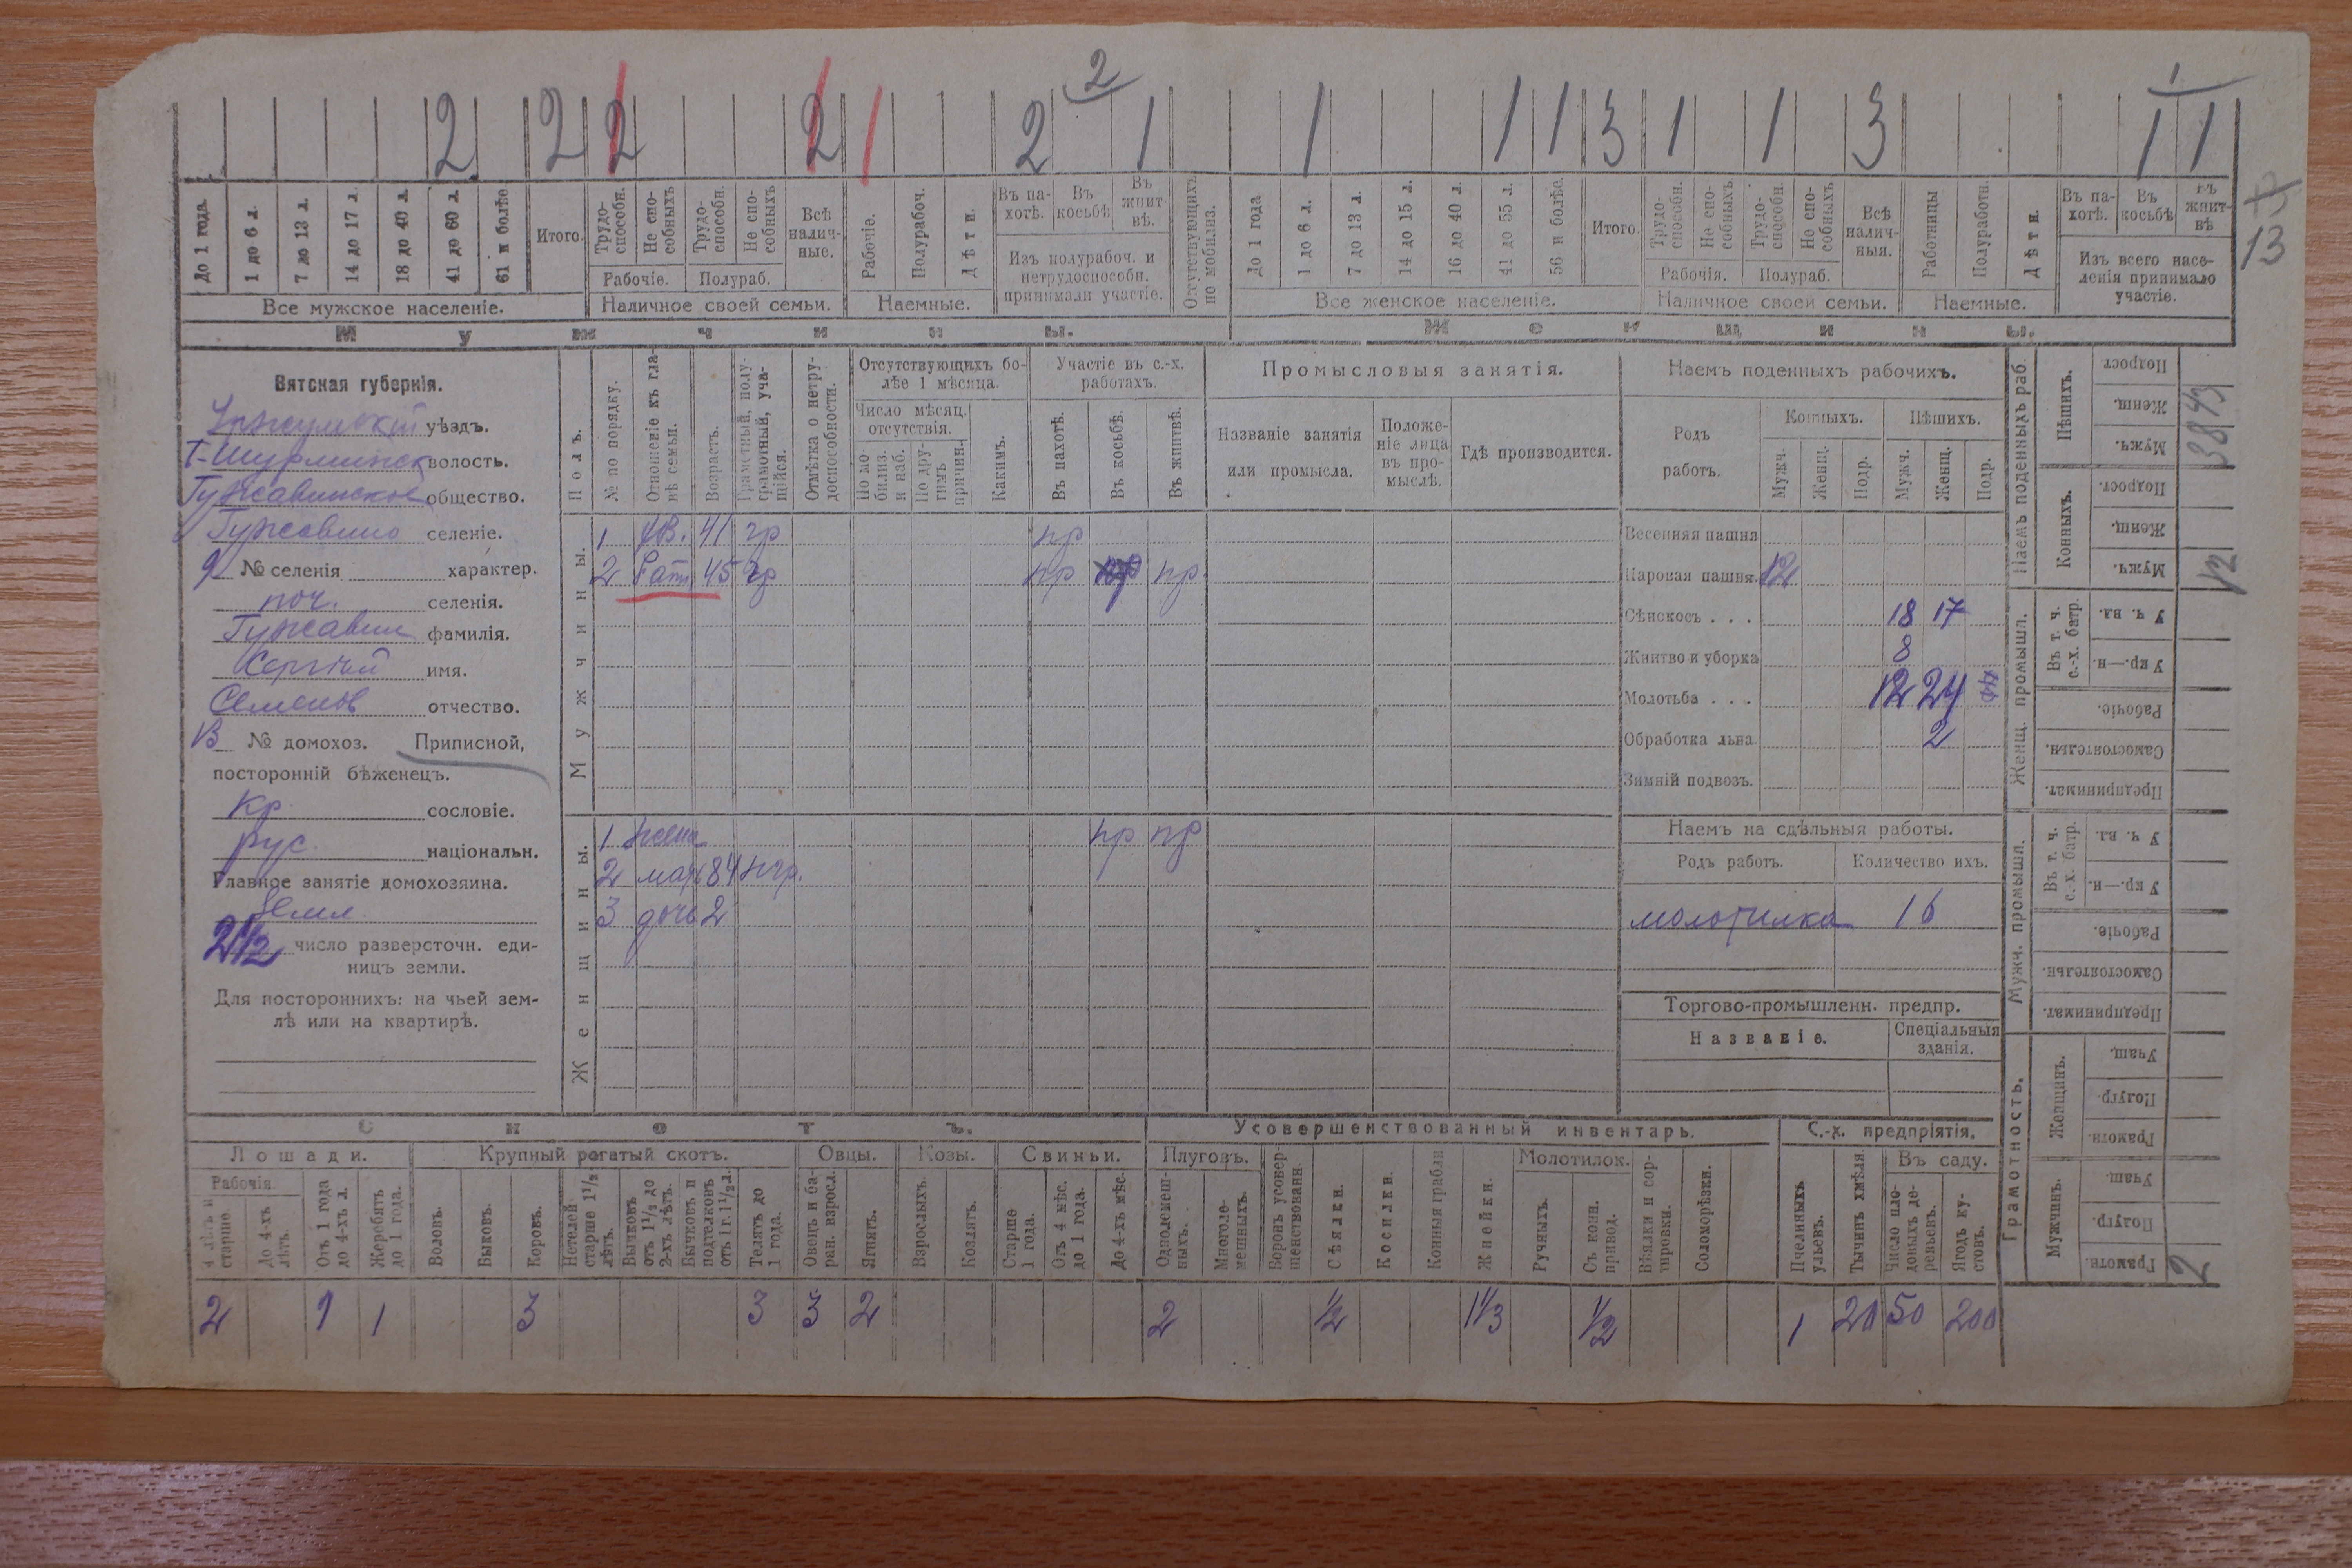 2
2 2 2 2 2 1 1 1 1 3 1 1 3 1 1
До 1 года.
1 до 6 л.
7 до 13 л.
14 до 17 л.
18 до 40 л.
41 до 60 л.
61 и болѣе
Итого.
Трудо-способн.
Не спо-собныхъ
Трудо-способн.
Не спо-собныхъ
Всѣ налич-ные.
Рабочіе.
Полурабоч.
Дѣти.
Въ па-хотѣ.
Въ косьбѣ
Въ жнит-вѣ.
Отсутствующихъ по мобилиз.
До 1 года
1 до 6 л.
7 до 13 л.
14 до 15 л.
16 до 40 л.
41 до 55 л.
56 и болѣе.
Итого.
Трудо-способн.
Не спо-собныхъ
Трудо-способн.
Не спо-собныхъ.
Всѣ налич-ныя.
Работницы
Полуработн.
Дѣти.
Въ па-хотѣ.
Въ косьбѣ
Въ жнит-вѣ
13
Рабочіе. Полураб.
Изъ полурабоч. и нетрудоспособн. принимали участіе.
Рабочія. Полураб.
Изъ всего насе-ленія принимало участіе.
Все мужское населеніе. Наличное своей семьи. Наемные.
Все женское населеніе. Наличное своей семьи. Наемные.
Мужчины. Женщины.
Вятская губернія.
Уржумскій уѣздъ.
Т-Шурминск волость.
Гужавинское общество.
Гужавино селеніе.
9 № селенія характер.
поч. селенія.
Гужавин фамилія.
Сергѣй имя.
Семенов отчество.
13 № домохоз. Приписной,
посторонній бѣженецъ.
кр сословіе.
рус. національн.
Главное занятіе домохозяина.
Земл
2 1/2 число разверсточн. еди-
ницъ земли.
Для постороннихъ: на чьей зем-
лѣ или на квартирѣ.
Полъ.
№ по порядку.
Отношеніе къ гла-вѣ семьи.
Возрастъ.
Грамотный, полу-грамотный, уча-щійся.
Отмѣтка о нетру-доспособности.
Отсутствующихъ бо-лѣе 1 мѣсяца.
Число мѣсяц. отсутствія.
По мо-билиз. и наб.
По дру-гимъ причин.
Какимъ.
Участіе въ с.-х. работахъ.
Въ пахотѣ.
Въ косьбѣ.
Въ жнитвѣ.
Промысловыя занятія.
Названіе занятія или промысла.
Положе-ніе лица въ про-мыслѣ.
Гдѣ производится.
Мужчины.
1 дв. 41 гр пр
2 45 гр пр пр.
Женщины.
1 жена пр пр
2 мат 84 нгр.
3 дочь 2
Наемъ поденныхъ рабочихъ.
Родъ работъ.
Конныхъ. Пѣшихъ.
Мужч. Женщ. Подр. Мужч. Женщ. Подр.
Весенняя пашня
Паровая пашня. 12
Сѣнокосъ . . . 18 17
Жнитво и уборка 8
Молотьба . . . 12 24
Обработка льна 2
Зимній подвозъ.
Наемъ на сдѣльныя работы.
Родъ работъ. Количество ихъ.
молотилка 16
Торгово-промышленн. предпр.
Названіе. Спеціальныя зданія.
Наемъ поденныхъ раб.
Пѣшихъ.
Подрост
Женщ. 43
Мужч. 38
Конныхъ.
Подрост.
Женщ.
Мужч. 12
Женщ. промышл.
Въ т. ч. с.-х. батр.
У ч. вл.
У кр.—н.
Рабочіе.
Самостоятельн.
Предпринимат.
Мужч. промышл.
Въ т. ч. с.-х. батр.
У ч. вл.
У кр.—н.
Рабочіе.
Самостоятельн.
Предпринимат.
Грамотность.
Женщинъ.
Учащ.
Полугр.
Грамотн.
Мужчинъ.
Учащ.
Полугр.
Грамотн. 2
Скотъ.
Усовершенствованный инвентарь.
С.-х. предпріятія.
Лошади. Крупный рогатый скотъ. Овцы. Козы. Свиньи. Плуговъ. Молотилок. Въ саду.
Рабочія.
4 лѣтъ и старше.
До 4-хъ лѣтъ.
Отъ 1 года до 4-хъ л.
Жеребятъ до 1 года.
Воловъ.
Быковъ.
Коровъ.
Нетелей старше 1 1/2 лѣтъ.
Бычковъ отъ 1 1/2 до 2-хъ лѣтъ.
Бычковъ и подтелковъ отъ 1 г. 1 1/2 л.
Телятъ до 1 года.
Овецъ и ба-ран. взросл.
Ягнятъ.
Взрослыхъ.
Козлятъ.
Старше 1 года.
Отъ 4 мѣс. до 1 года.
До 4-хъ мѣс.
Однолемеш-ныхъ.
Многоле-мешныхъ.
Боронъ усовер-шенствованн.
Сѣялки.
Косилки.
Конныя грабли
Жнейки.
Ручныхъ.
Съ конн. привод.
Вѣялки и сор-тировки.
Соломорѣзки.
Пчелиныхъ ульевъ.
Тычинъ хмѣля.
Число пло-довыхъ де-ревьевъ.
Ягодъ ку-стовъ.
2 1 1 3 3 3 2 2 1/2 1 1/3 1/2 1 20 50 200